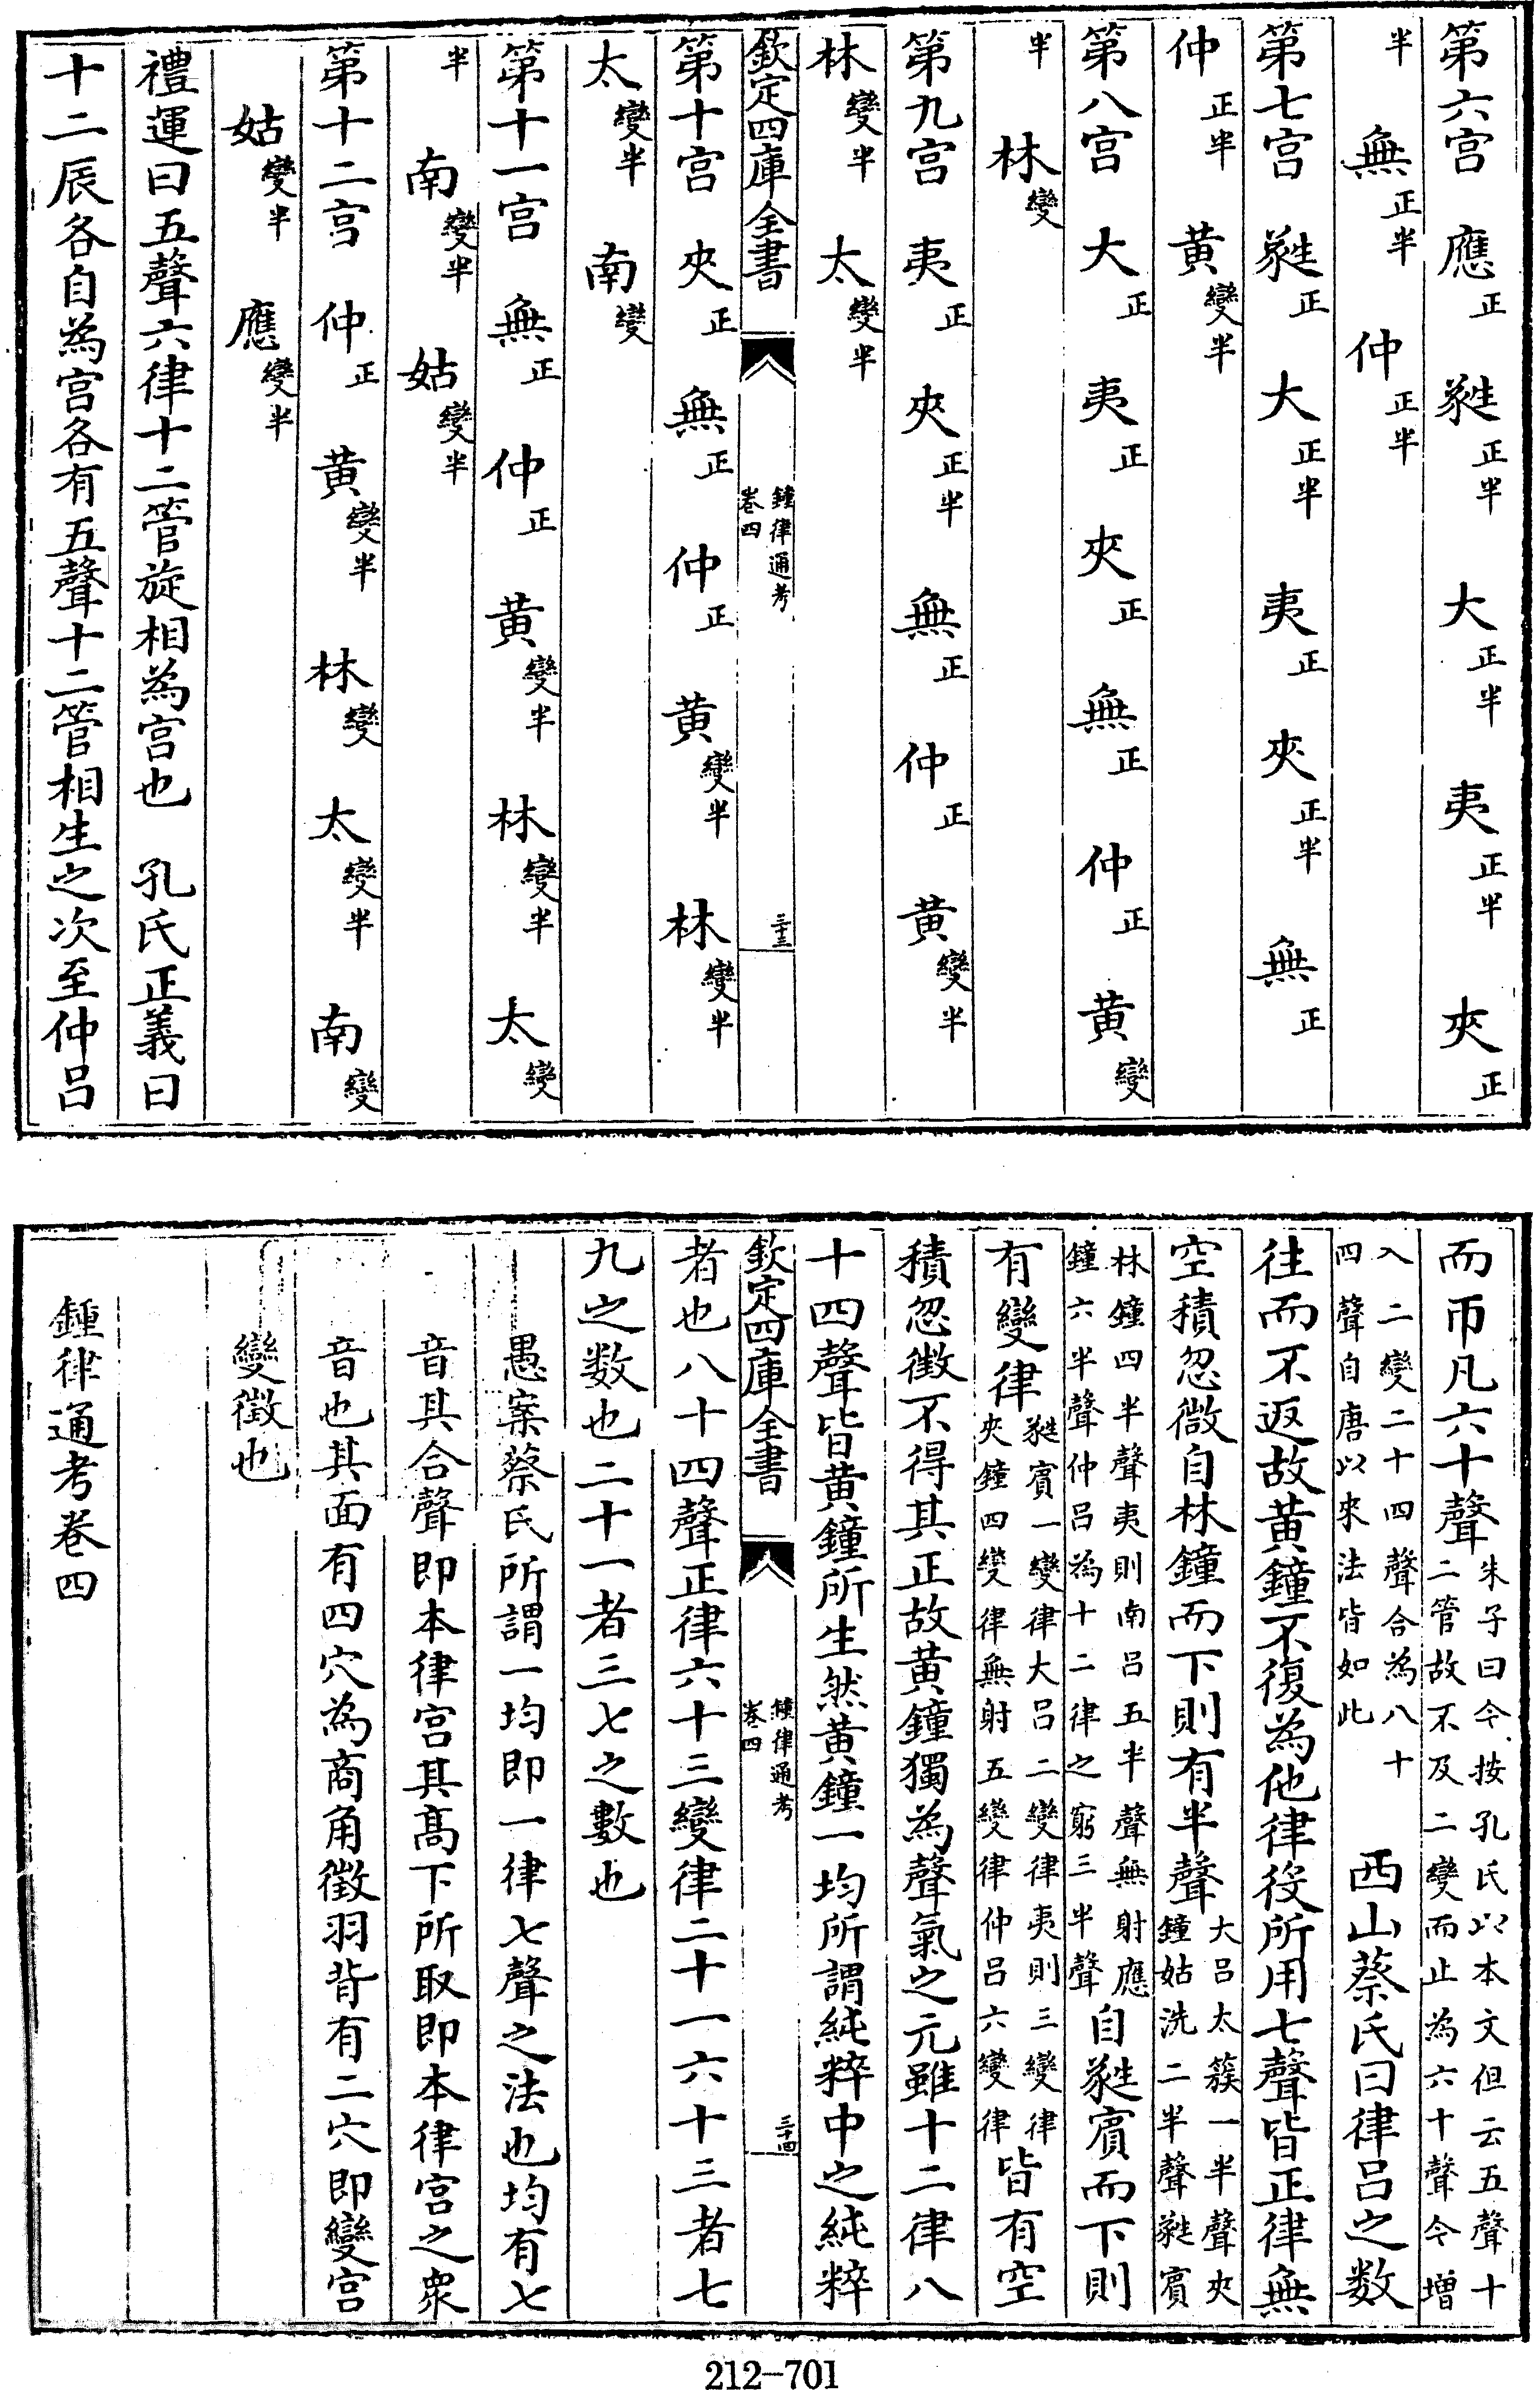 第六宫　應正　蕤正半　大正半　夷正半　夾正
半　無正半　仲正半
第七宫　蕤正　大正半　夷正　夾正半　無正
仲正半　黄變半
第八宫　大正　夷正　夾正　無正　仲正　黄變
半　林變
第九宫　夷正　夾正半　無正　仲正　黄變半
林變半　太變半
欽定四庫全書　鍾律通考卷四　三十三
第十宫　夾正　無正　仲正　黄變半　林變半
太變半　南變
第十一宫　無正　仲正　黄變半　林變半　太變
半　南變半　姑變半
第十二宫　仲正　黄變半　林變　太變半　南變
姑變半　應變半
禮運曰五聲六律十二管旋相為宫也　孔氏正義曰
十二辰各自為宫各有五聲十二管相生之次至仲吕
而帀凡六十聲朱子曰今按孔氏以本文但云五聲十二管故不及二變而止為六十聲今增
入二變二十四聲合為八十四聲自唐以來法皆如此　西山蔡氏曰律吕之数
往而不返故黄鐘不復為他律役所用七聲皆正律無
空積忽微自林鐘而下則有半聲大吕太簇一半聲夾鐘姑洗二半聲蕤賓
林鐘四半聲夷則南吕五半聲無射應鐘六半聲仲吕為十二律之窮三半聲自蕤賓而下則
有變律蕤賓一變律大吕二變律夷則三變律夾鐘四變律無射五變律仲吕六變律皆有空
積忽微不得其正故黄鐘獨為聲氣之元雖十二律八
十四聲皆黄鐘所生然黄鐘一均所謂純粹中之純粹
欽定四庫全書　鍾律通考卷四　三十四
者也八十四聲正律六十三變律二十一六十三者七
九之数也二十一者三七之數也
愚案蔡氏所謂一均即一律七聲之法也均有七
音其合聲即本律宫其髙下所取即本律宫之衆
音也其面有四穴為商角徵羽背有二穴即變宫
變徵也
鍾律通考卷四
212-701